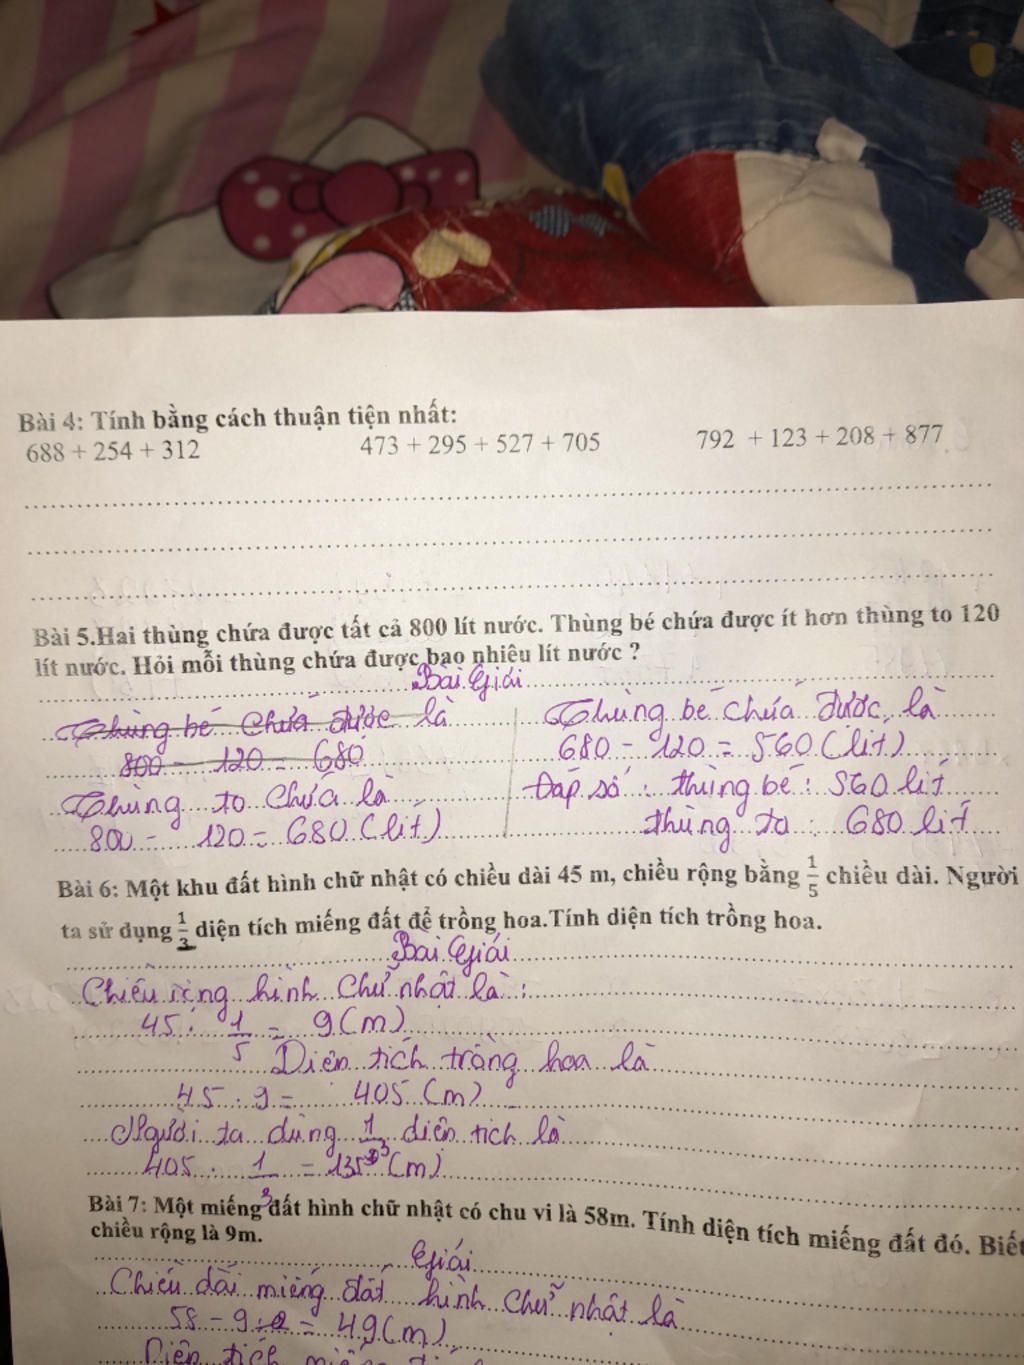 Bài 4: Tính bằng cách thuận tiện nhất:
688 + 254 + 312 473 + 295 + 527 + 705 792 + 123 + 208 + 877
Bài 5.Hai thùng chứa được tất cả 800 lít nước. Thùng bé chứa được ít hơn thùng to 120
lít nước. Hỏi mỗi thùng chứa được bao nhiêu lít nước ?
Bài Giải
Thùng bé chứa được là
800 - 120 = 680
Thùng to chứa là
800 - 120 = 680 (lít)
Thùng bé chứa được là
680 - 120 = 560 (lít)
Đáp số : thùng bé : 560 lít
thùng to : 680 lít
Bài 6: Một khu đất hình chữ nhật có chiều dài 45 m, chiều rộng bằng 1/5 chiều dài. Người
ta sử dụng 1/3 diện tích miếng đất để trồng hoa.Tính diện tích trồng hoa.
Bài Giải
Chiều rộng hình chữ nhật là :
45 . 1/5 = 9 (m)
Diện tích trồng hoa là
45 . 9 = 405 (m)
Người ta dùng 1/3 diện tích là
405 . 1/3 = 135 (m)
Bài 7: Một miếng đất hình chữ nhật có chu vi là 58m. Tính diện tích miếng đất đó. Biết
chiều rộng là 9m.
Giải
Chiều dài miếng đất hình chữ nhật là
58 - 9 = 49 (m)
Diện tích